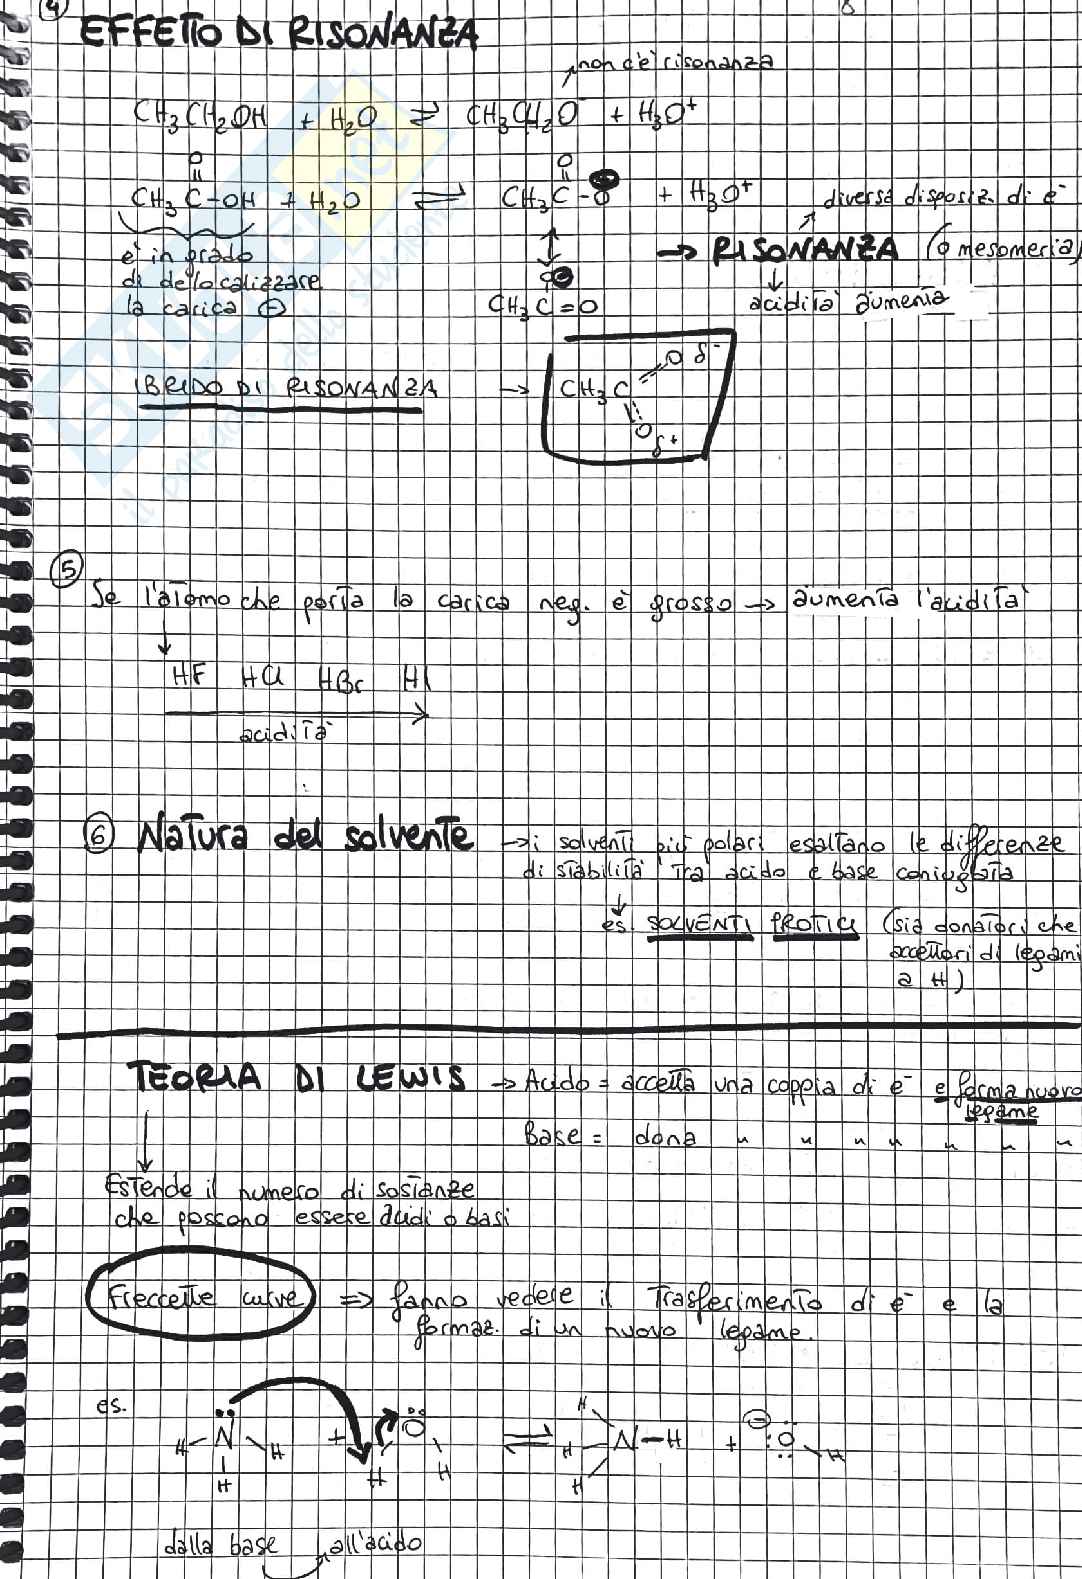 ④ 8
EFFETTO DI RISONANZA
non c'è risonanza
CH3CH2OH + H2O ⇌ CH3CH2O⁻ + H3O⁺
O O
CH3C-OH + H2O ⇌ CH3C-O⊖ + H3O⁺ diversa disposiz. di e⁻
è in grado → RISONANZA (o mesomeria)
di delocalizzare O⊖
la carica ⊖ CH3C=O acidità aumenta
IBRIDO DI RISONANZA → CH3C O δ⁻
O δ⁺
⑤
Se l'atomo che porta la carica neg. è grosso → aumenta l'acidità
HF HCl HBr HI
acidità
⑥ Natura del solvente → i solventi più polari esaltano le differenze
di stabilità tra acido e base coniugata
es. SOLVENTI PROTICI (sia donatori che
accettori di legami
a H)
TEORIA DI LEWIS → Acido = accetta una coppia di e⁻ e forma nuovo
legame
Base = dona " " " " " " "
Estende il numero di sostanze
che possono essere acidi o basi
Freccette curve ⇒ fanno vedere il trasferimento di e⁻ e la
formaz. di un nuovo legame.
es.
H-N-H + O ⇌ H N-H + ⊖ :O:
H H H H H H
dalla base all'acido
il paradiso dello studente
.net